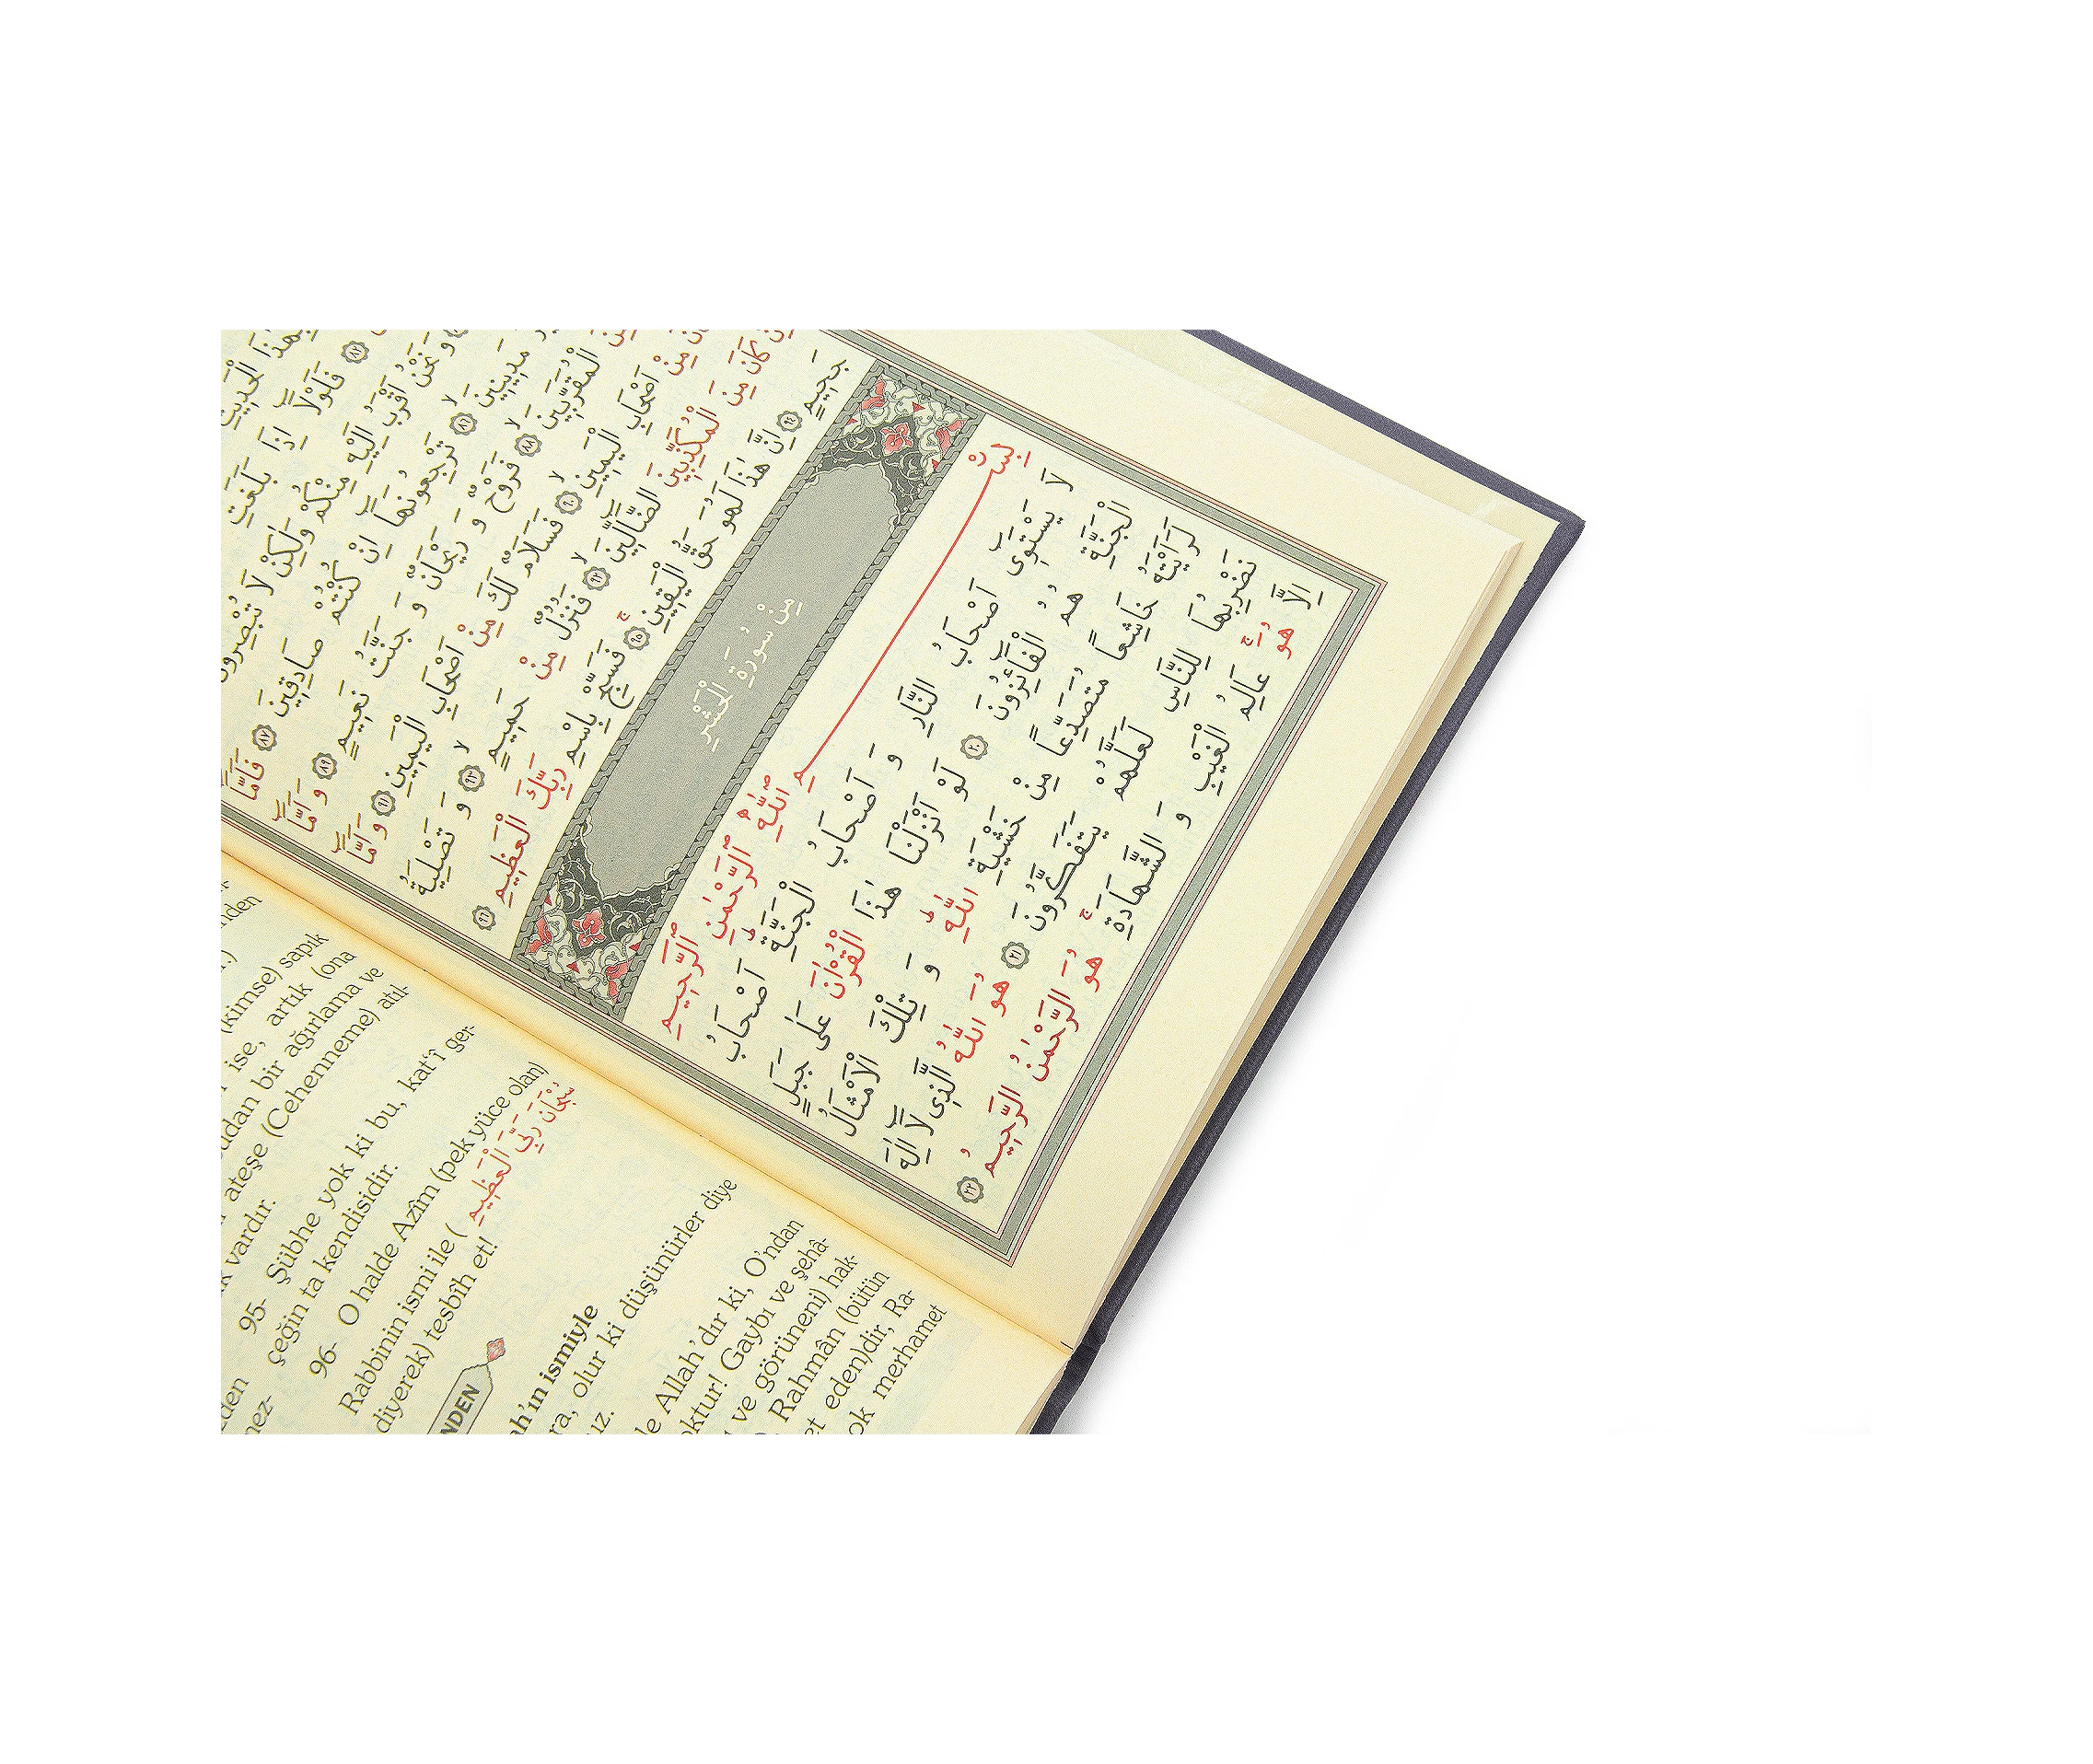 هٰذَا الْحَدِيثِ
﴿٨٢﴾ فَلَوْلَٓا اِذَا بَلَغَتِ
وَ نَحْنُ اَقْرَبُ اِلَيْهِ مِنْكُمْ وَلٰكِنْ لَا تُبْصِرُونَ
مَدِينِينَ ﴿٨٦﴾ تَرْجِعُونَهَٓا اِنْ كُنْتُمْ صَادِقِينَ ﴿٨٧﴾ فَاَمَّٓا
الْمُقَرَّبِينَ ﴿٨٨﴾ فَرَوْحٌ وَ رَيْحَانٌ وَ جَنَّتُ نَعِيمٍ ﴿٨٩﴾ وَ اَمَّٓا
مِنْ اَصْحَابِ الْيَمِينِ ﴿٩٠﴾ فَسَلَامٌ لَكَ مِنْ اَصْحَابِ الْيَمِينِ ﴿٩١﴾ وَ اَمَّٓا
كَانَ مِنَ الْمُكَذِّبِينَ الضَّٓالِّينَ ﴿٩٢﴾ فَنُزُلٌ مِنْ حَمِيمٍ ﴿٩٣﴾ وَ تَصْلِيَةُ
جَحِيمٍ ﴿٩٤﴾ اِنَّ هٰذَا لَهُوَ حَقُّ الْيَقِينِ ﴿٩٥﴾ فَسَبِّحْ بِاسْمِ رَبِّكَ الْعَظِيمِ ﴿٩٦﴾
مِنْ سُورَةِ الْحَشْرِ
بِسْمِ اللّٰهِ الرَّحْمٰنِ الرَّحِيمِ
لَا يَسْتَوِٓى اَصْحَابُ النَّارِ وَ اَصْحَابُ الْجَنَّةِ اَصْحَابُ
الْجَنَّةِ هُمُ الْفَٓائِزُونَ ﴿٢٠﴾ لَوْ اَنْزَلْنَا هٰذَا الْقُرْاٰنَ عَلٰى جَبَلٍ
لَرَاَيْتَهُ خَاشِعًا مُتَصَدِّعًا مِنْ خَشْيَةِ اللّٰهِ وَ تِلْكَ الْاَمْثَالُ
نَضْرِبُهَا لِلنَّاسِ لَعَلَّهُمْ يَتَفَكَّرُونَ ﴿٢١﴾ هُوَ اللّٰهُ الَّذِى لَٓا اِلٰهَ
اِلَّا هُوَ عَالِمُ الْغَيْبِ وَ الشَّهَادَةِ هُوَ الرَّحْمٰنُ الرَّحِيمُ ﴿٢٢﴾
(kimse) sapık
ise, artık (ona
bir ağırlama ve
ateşe (Cehenneme) atıl-
vardır.
95- Şübhe yok ki bu, kat'î ger-
çeğin ta kendisidir.
96- O halde Azîm (pek yüce olan)
Rabbinin ismi ile ( سُبْحَانَ رَبِّىَ الْعَظِيمِ
diyerek) tesbîh et!
olur ki düşünürler diye
Allah'dır ki, O'ndan
Gaybı ve şehâ-
ve görüneni) hak-
Rahmân (bütün
eden)dir, Ra-
merhamet